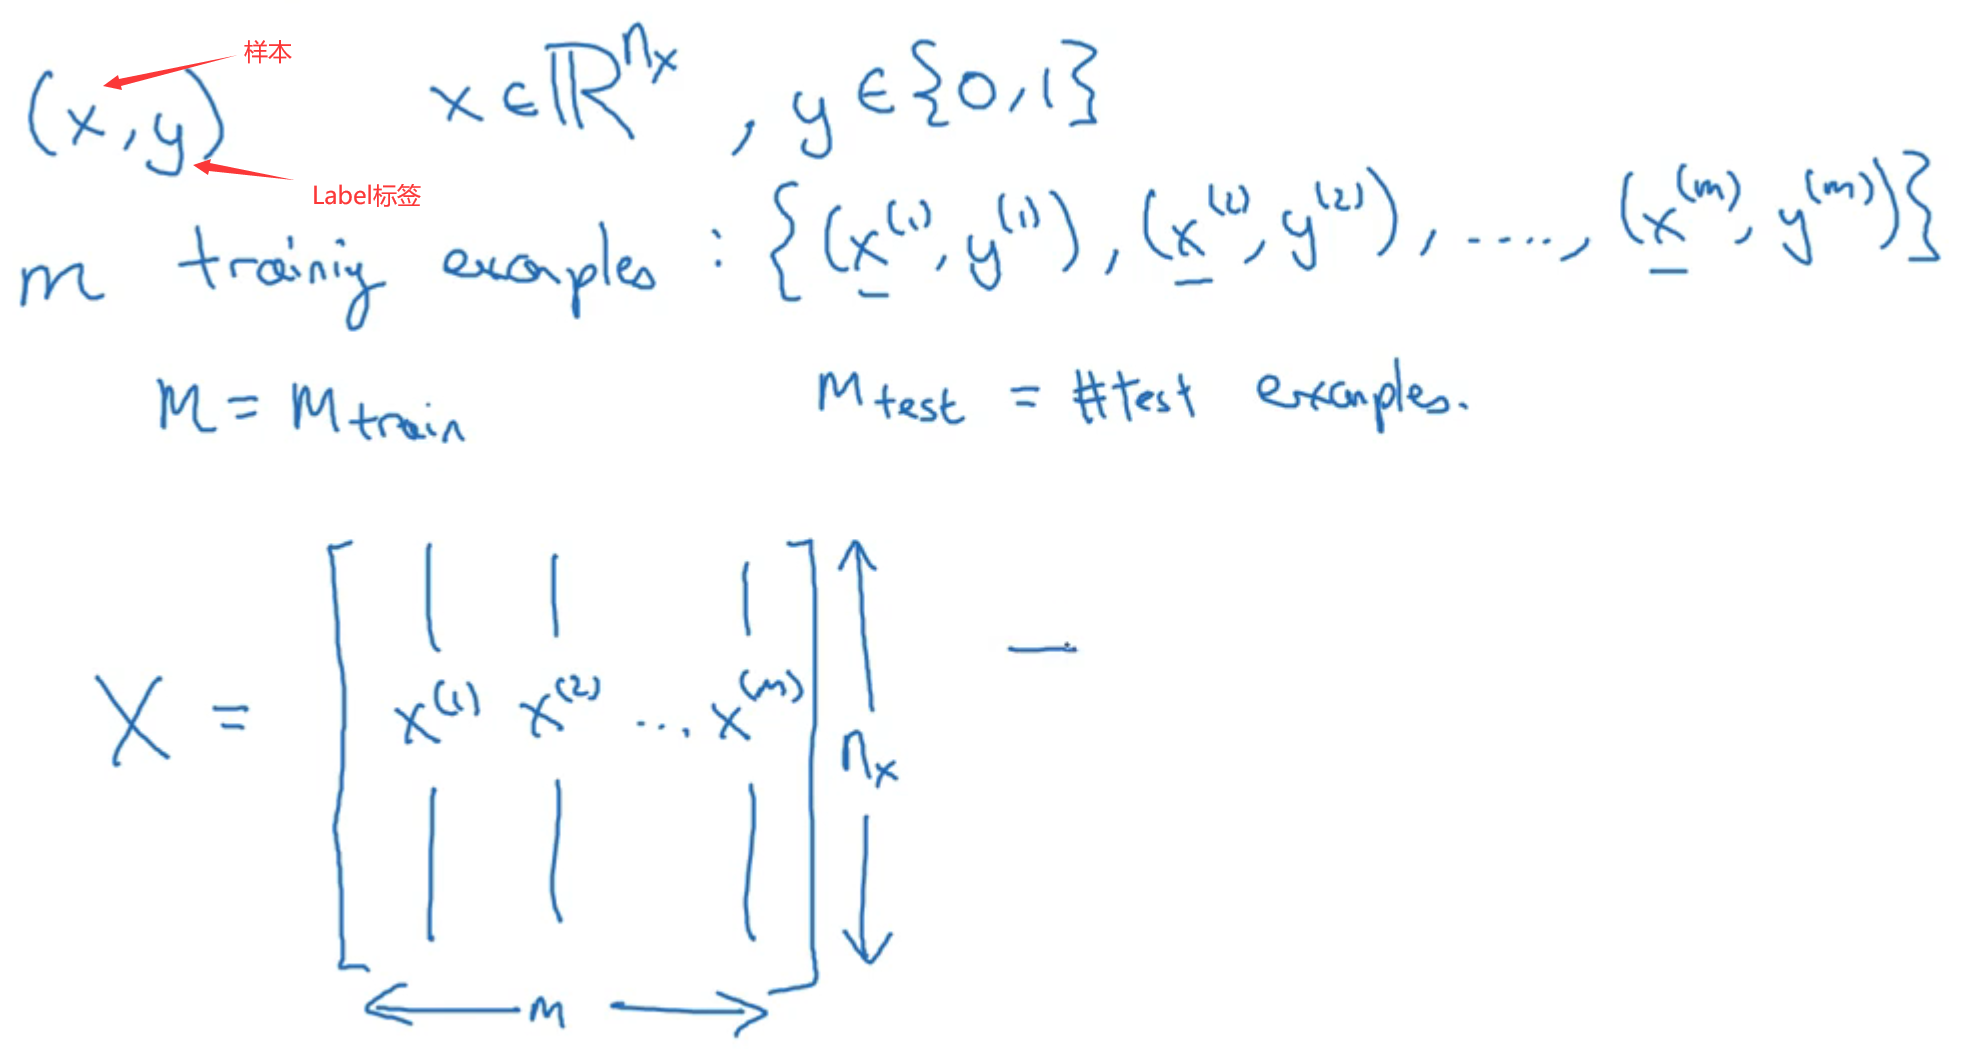 样本
(x, y) x ∈ ℝ^{n_x}, y ∈ {0,1}
Label标签
m training examples : {(x^{(1)}, y^{(1)}), (x^{(2)}, y^{(2)}), ....., (x^{(m)}, y^{(m)})}
M = M_{train} M_{test} = #test examples.
X = [ x^{(1)} x^{(2)} ... x^{(m)} ] n_x
m